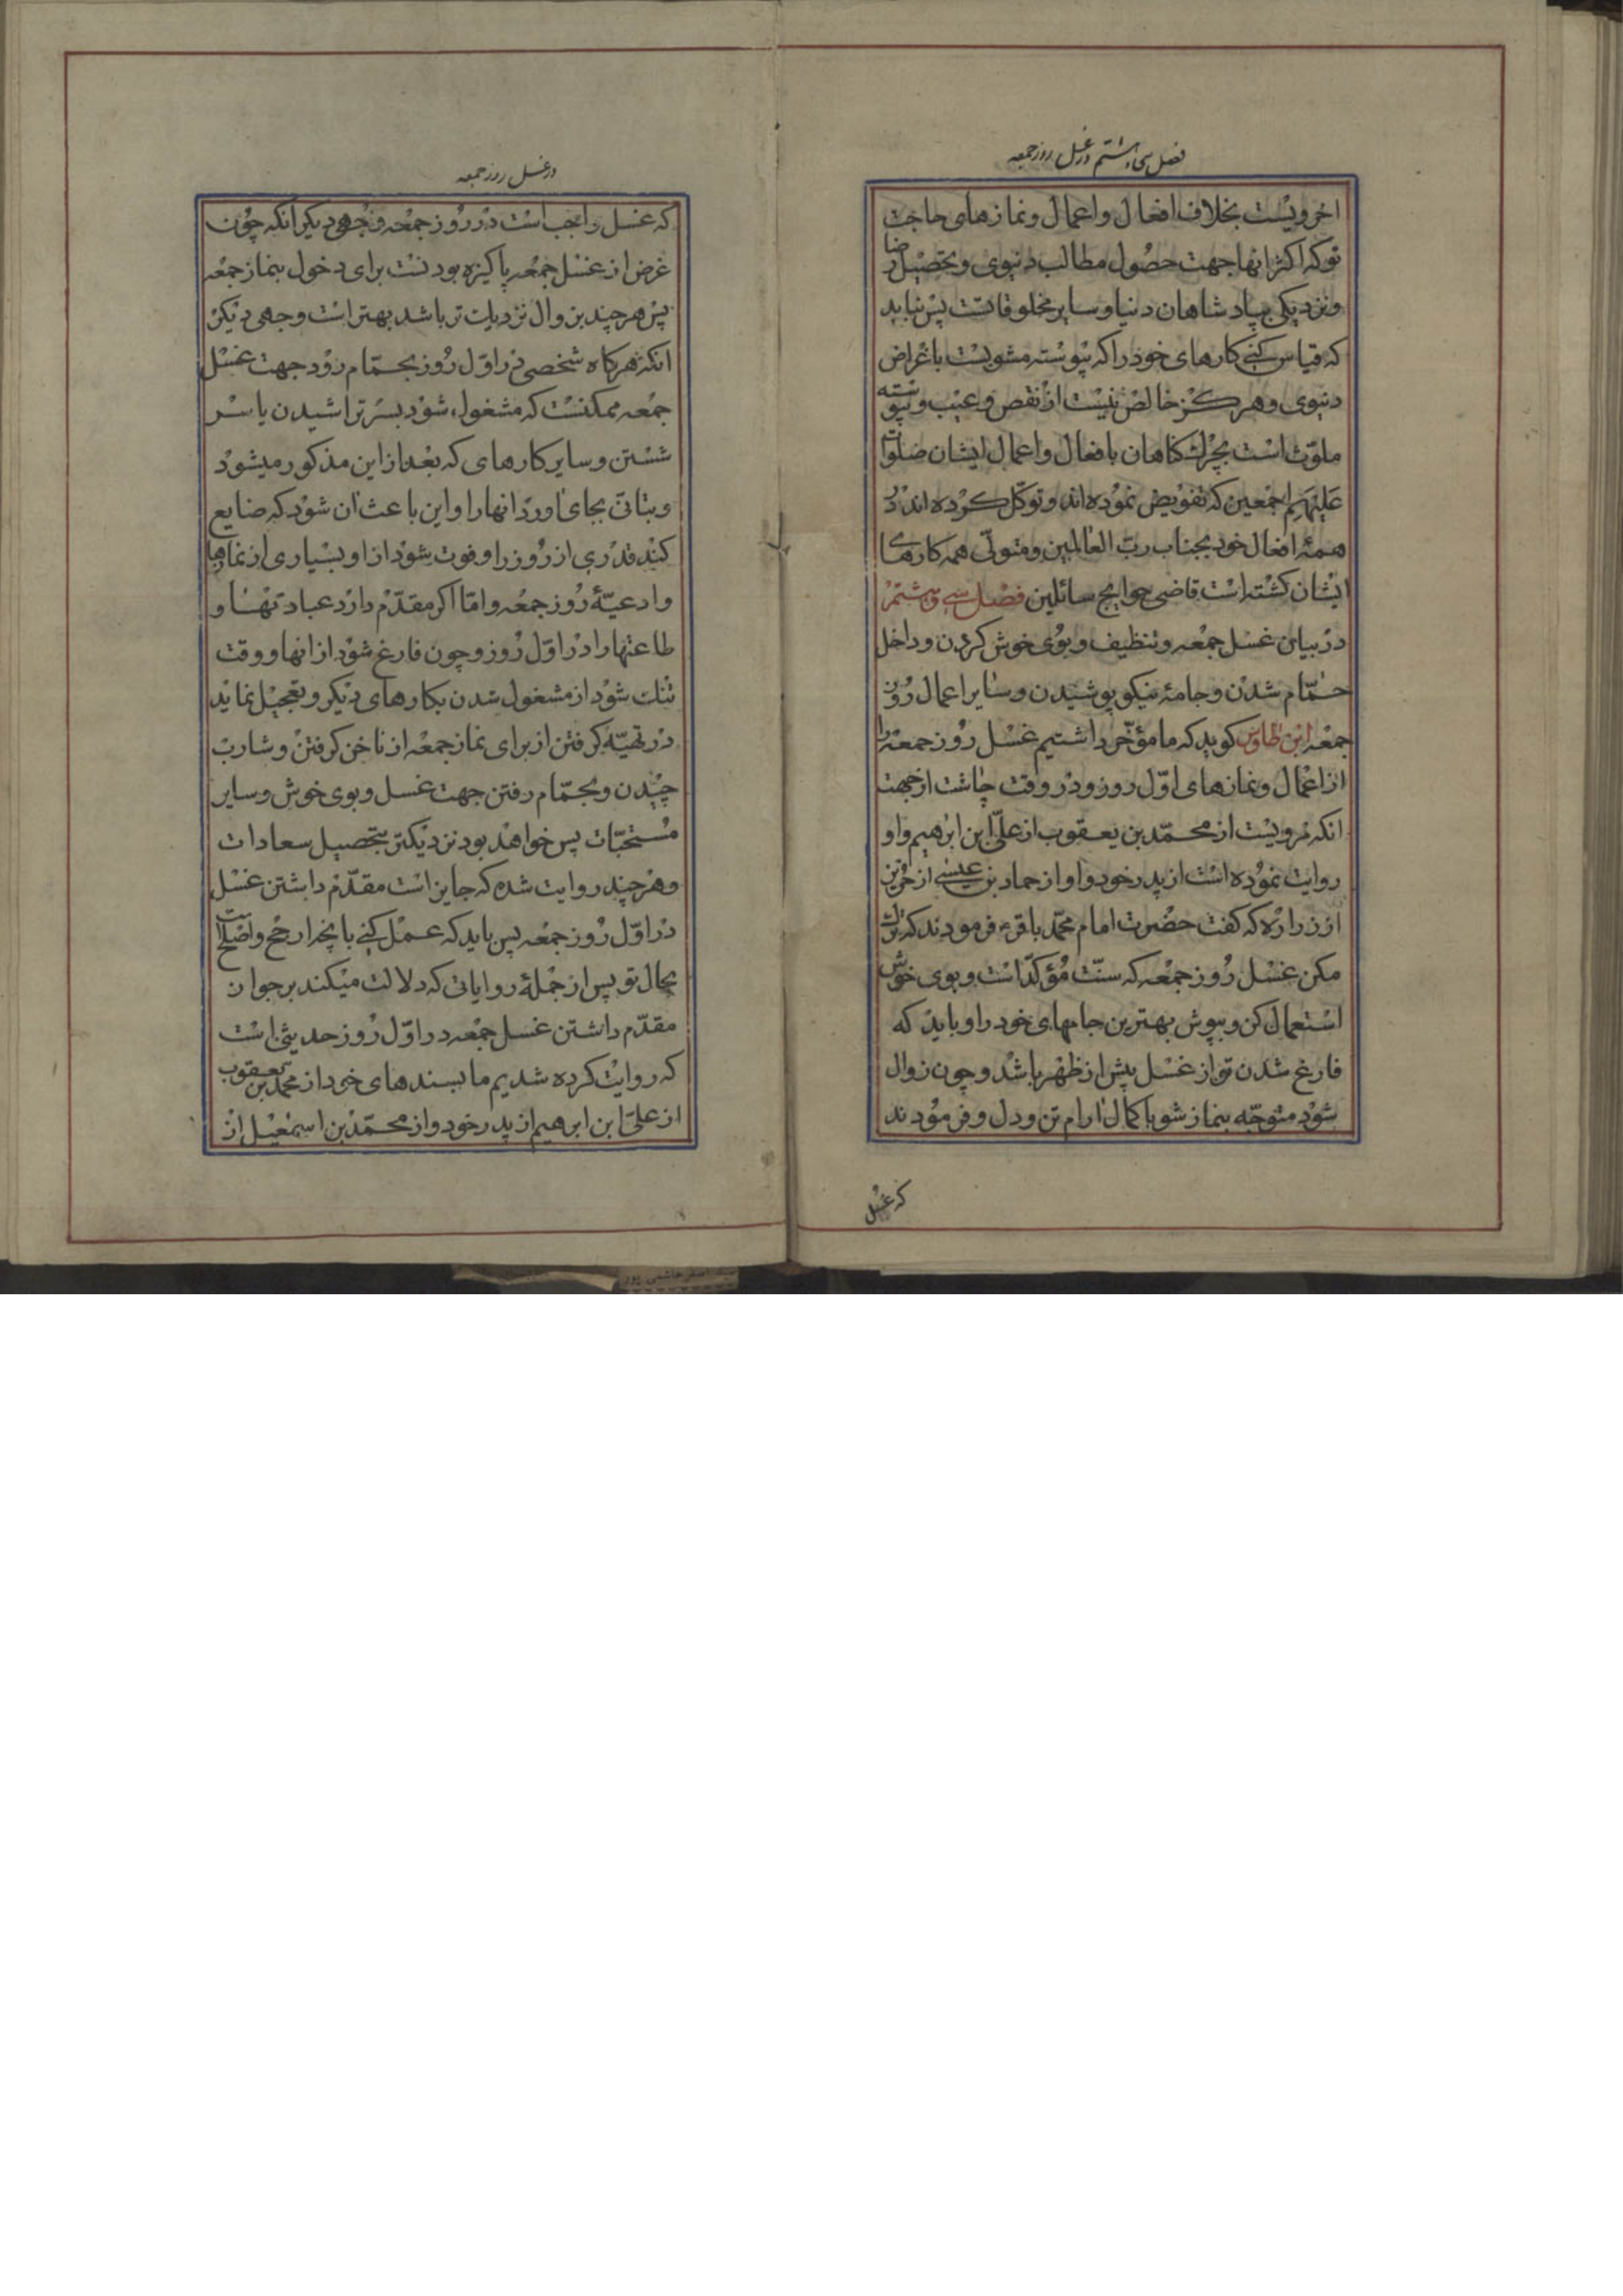 فصل سی و هشتم در غسل روز جمعه
اخرویست بخلاف افعال و اعمال و نمازهای حاجت
توکه اکثر انها جهت حصول مطالب دنیوی و تحصیل رضا
و نزدیکی بپادشاهان دنیا و سایر مخلوقاتست پس نباید
که قیاس کنی کارهای خود را که پیوسته مشوبست باغراض
دنیوی و هرکز خالص نیست از نقص و عیب و پیوسته
ملوّث است بچرک کناهان بافعال و اعمال ایشان صلوات
علیهم اجمعین که تفویض نموده اند و توکّل کرده اند در
همۀ افعال خود بجناب ربّ العالمین و متولّی همه کارهای
ایشان کشته است قاضی حوایج سائلین فصل سی و هشتم
در بیان غسل جمعه و تنظیف و بوی خوش کردن و داخل
حمّام شدن و جامۀ نیکو پوشیدن و سایر اعمال روز
جمعه ابن طاوس کوید که ما مؤخّر داشتیم غسل روز جمعه را
از اعمال و نمازهای اوّل روز و در وقت چاشت از جهت
انکه مرویست از محمّد بن یعقوب از علی ابن ابرهیم و او
روایت نموده است از پدر خود و او از حماد بن عیسی از حریز
از زراره که کفت حضرت امام محمّد باقرء فرمودند که ترک
مکن غسل روز جمعه که سنّت مؤکّد است و بوی خوش
استعمال کن و بپوش بهترین جامهای خود را و باید که
فارغ شدن تو از غسل پیش از ظهر باشد و چون زوال
شود متوجّه بنماز شو با کمال ارام تن و دل و فرمودند
که غسل
در غسل روز جمعه
که غسل واجب است در روز جمعه وجهی دیکر انکه چون
غرض از غسل جمعه پاکیزه بودنست برای دخول بنماز جمعه
پس هر چند بزوال نزدیک تر باشد بهتر است وجهی دیکر
انکه هرکاه شخصی در اوّل روز بحمّام رود جهت غسل
جمعه ممکنست که مشغول شود بسر تراشیدن یا سر
شستن و سایر کارهای که بعد از این مذکور میشود
و بتانّی بجای اورد انها را و این باعث ان شود که ضایع
کند قدری از روز را و فوت شود از او بسیاری از نمازها
و ادعیّۀ روز جمعه و امّا اکر مقدّم دارد عبادتها و
طاعتها را در اوّل روز و چون فارغ شود از انها و وقت
تنک شود از مشغول شدن بکارهای دیکر و تعجیل نماید
در تهیّه کرفتن از برای نماز جمعه از ناخن کرفتن و شارب
چیدن و بحمّام رفتن جهت غسل و بوی خوش و سایر
مستحبّات پس خواهد بود نزدیکتر بتحصیل سعادات
و هر چند روایت شده که جایز است مقدّم داشتن غسل
در اوّل روز جمعه پس باید که عمل کنی بانچه ارجح و اصلح است
بحال تو پس از جملۀ روایاتی که دلالت میکند بر جواز
مقدّم داشتن غسل جمعه در اوّل روز حدیثی است
که روایت کرده شدیم ما بسندهای خود از محمد بن یعقوب
از علی ابن ابرهیم از پدر خود و از محمّد بن اسمعیل از